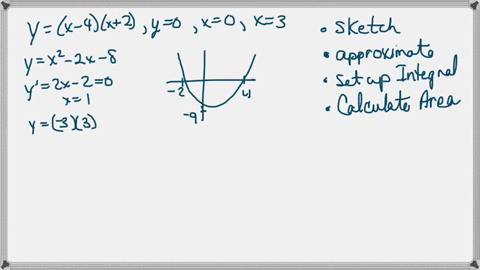 y = (x-4)(x+2), y=0, x=0, x=3
y = x² - 2x - 8
y' = 2x - 2 = 0
x = 1
y = (-3)(3)
-2
4
-9
• Sketch
• approximate
• Set up Integral
• Calculate Area